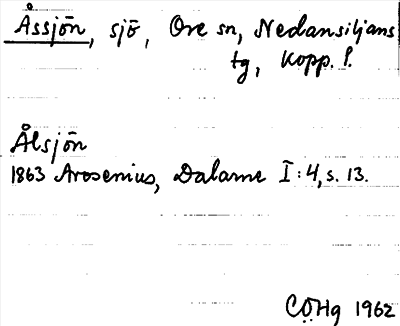 Åssjön, sjö, Ore sn, Nedansiljans
tg, Kopp. l.
Ålsjön
1863 Arosenius, Dalarne I:4, s. 13.
CÖHg 1962